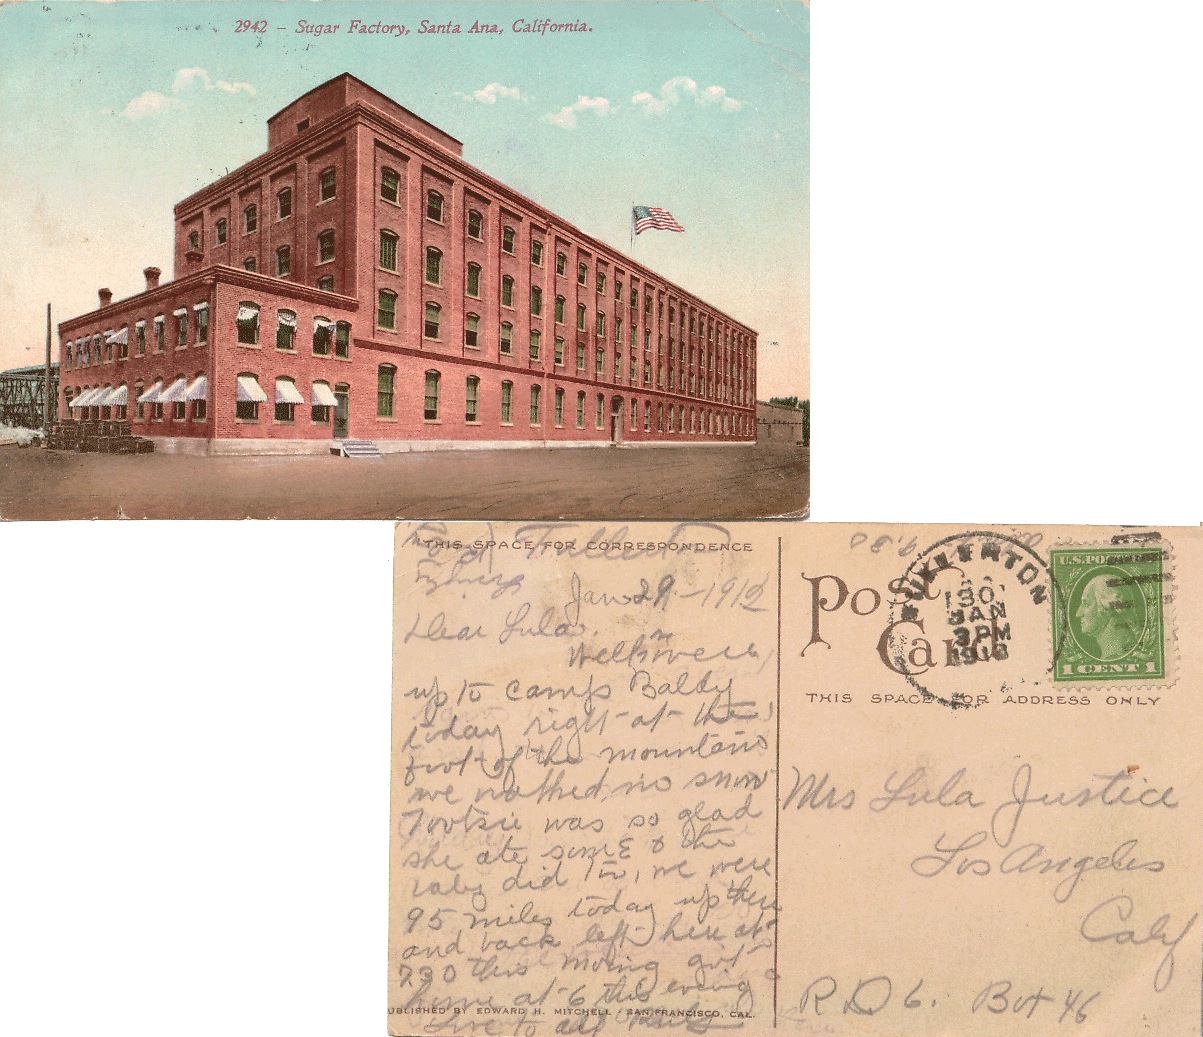 2942 – Sugar Factory, Santa Ana, California.
THIS SPACE FOR CORRESPONDENCE
Jan 29 – 1912
Dear Lula.
Well were
up to camp Baldy
today right at the
foot of the mountains
we wathed in snow
Tootsie was so glad
she ate some & the
baby did to, we were
95 miles today up there
and back left here at
730 this moring got
home at 6 this evening
Love to all
PUBLISHED BY EDWARD H. MITCHELL SAN FRANCISCO, CAL.
Post Card
FULLERTON
30
JAN
3 PM
1913
U.S. POSTAGE
1 CENT 1
THIS SPACE FOR ADDRESS ONLY
Mrs Lula Justice
Los Angeles
Calif
R D 6. Box 46